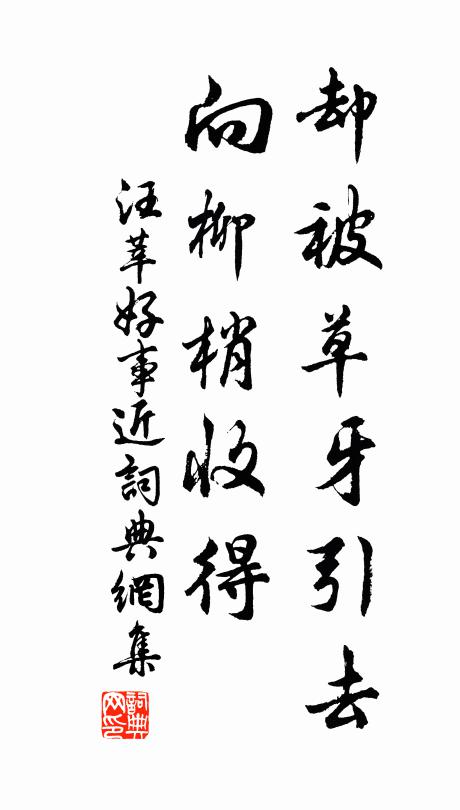 却被草牙引去
向柳梢收得
汪莘好事近詞典網集
詞典网印